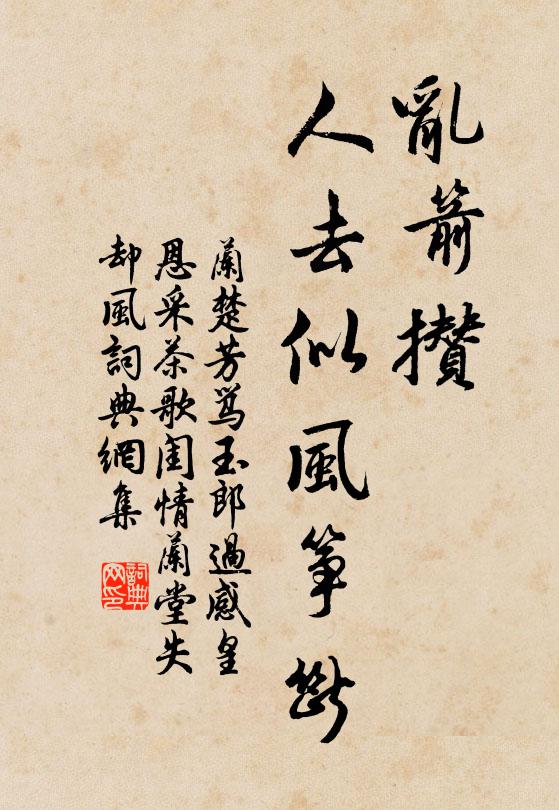 亂箭攢
人去似風箏斷
蘭楚芳罵玉郎過感皇
恩采茶歌閨情蘭堂失
却風詞典網集
詞典网印